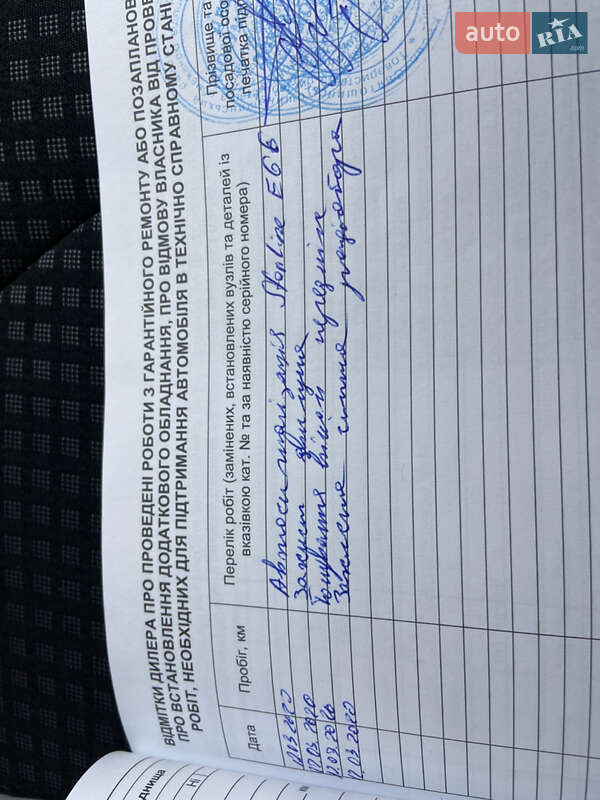 auto RIA .com
ВІДМІТКИ ДИЛЕРА ПРО ПРОВЕДЕНІ РОБОТИ З ГАРАНТІЙНОГО РЕМОНТУ АБО ПОЗАПЛАНОВ
ПРО ВСТАНОВЛЕННЯ ДОДАТКОВОГО ОБЛАДНАННЯ, ПРО ВІДМОВУ ВЛАСНИКА ВІД ПРОВЕ
РОБІТ, НЕОБХІДНИХ ДЛЯ ПІДТРИМАННЯ АВТОМОБІЛЯ В ТЕХНІЧНО СПРАВНОМУ СТАНІ
Дата
Пробіг, км
Перелік робіт (замінених, встановлених вузлів та деталей із
вказівкою кат. № та за наявністю серійного номера)
Прізвище та
посадової осо
печатка під
12.03.2020 Автосигналізація Starline E66
12.03.2020 Захист двигуна
12.03.2020 Тонування вікон передніх
12.03.2020 Захисна сітка радіатора
днища
Ні